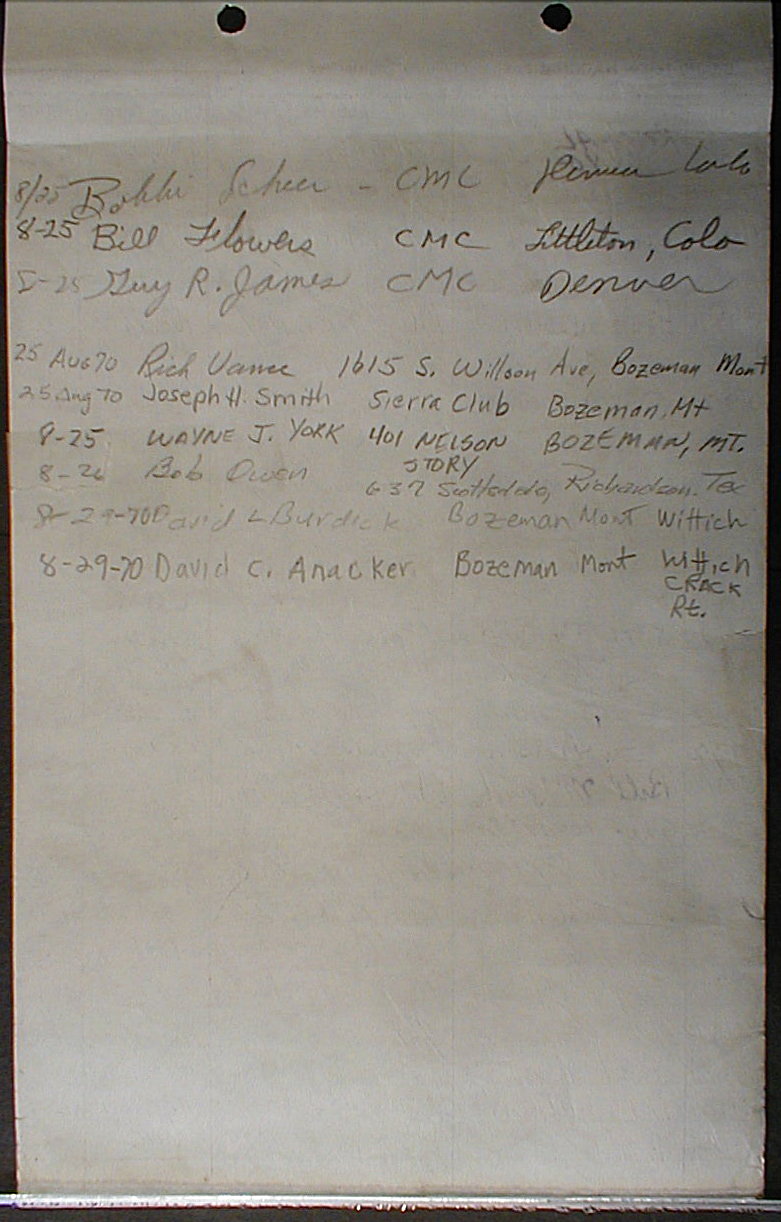 8/25 Bobbi Scheer - CMC Denver Colo
8-25 Bill Flowers CMC Littleton, Colo
8-25 Guy R. James CMC Denver
25 Aug 70 Rich Vance 1615 S. Willson Ave, Bozeman Mont
25 Aug 70 Joseph H. Smith Sierra Club Bozeman, Mt
8-25 WAYNE J. YORK 401 NELSON BOZEMAN, MT.
STORY
8-26 Bob Owen 637 Richardson, Tex
8-29-70 David L Burdick Bozeman Mont Wittich
8-29-70 David C. Anacker Bozeman Mont Wittich
CRACK
Rt.